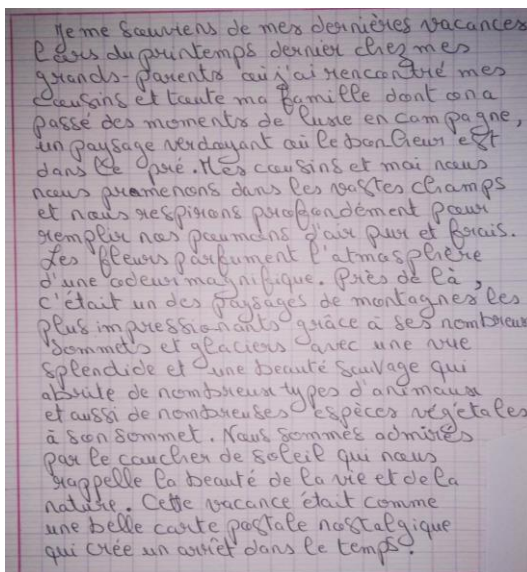 Je me souviens de mes dernières vacances
lors du printemps dernier chez mes
grands-parents où j'ai rencontré mes
cousins et toute ma famille dont on a
passé des moments de luxe en campagne,
un paysage verdoyant où le bonheur est
dans le pré. Mes cousins et moi nous
nous promenons dans les vastes champs
et nous respirons profondément pour
remplir nos poumons d'air pur et frais.
Les fleurs parfument l'atmosphère
d'une odeur magnifique. Près de là,
c'était un des paysages de montagnes les
plus impressionants grâce à ses nombreux
sommets et glaciers avec une vue
splendide et une beauté sauvage qui
abrite de nombreux types d'animaux
et aussi de nombreuses espèces végétales
à son sommet. Nous sommes admirés
par le coucher de soleil qui nous
rappelle la beauté de la vie et de la
nature. Cette vacance était comme
une belle carte postale nostalgique
qui crée un arrêt dans le temps.